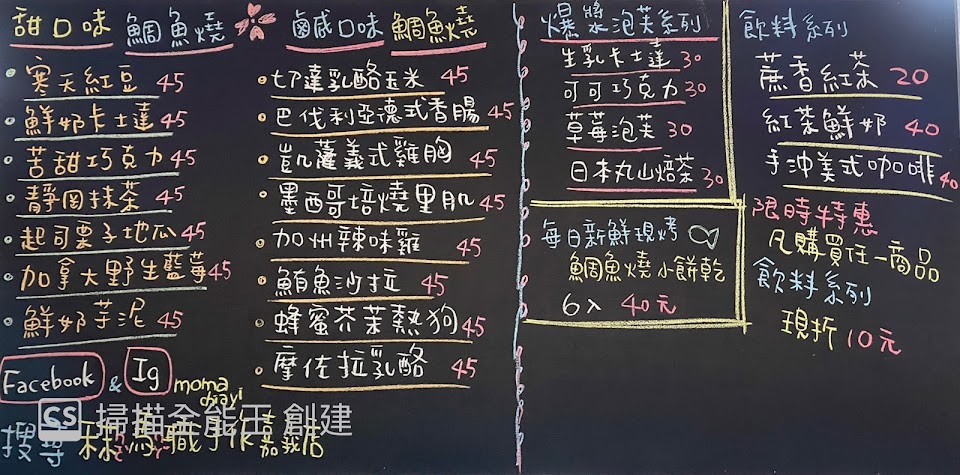 甜口味 鯛魚燒
寒天紅豆 45
鮮奶卡士達 45
苦甜巧克力 45
靜岡抹茶 45
起司栗子地瓜 45
加拿大野生藍莓 45
鮮奶芋泥 45
鹹口味 鯛魚燒
切達乳酪玉米 45
巴伐利亞德式香腸 45
凱薩義式雞胸 45
墨西哥培燒里肌 45
加州辣味雞 45
鮪魚沙拉 45
蜂蜜芥茉熱狗 45
摩佐拉乳酪 45
爆漿泡芙系列
生乳卡士達 30
可可巧克力 30
草莓泡芙 30
日本丸山焙茶 30
每日新鮮現烤
鯛魚燒小餅乾
6入 40元
飲料系列
蔗香紅茶 20
紅茶鮮奶 40
手沖美式咖啡 40
限時特惠
凡購買任一商品
飲料系列
現折10元
Facebook & Ig moma
搜尋 職 嘉義店
CS 掃描全能王 創建